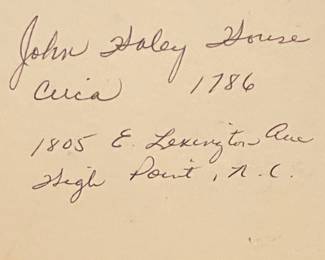 John Haley House
Circa 1786
1805 E. Lexington Ave
High Point, N.C.